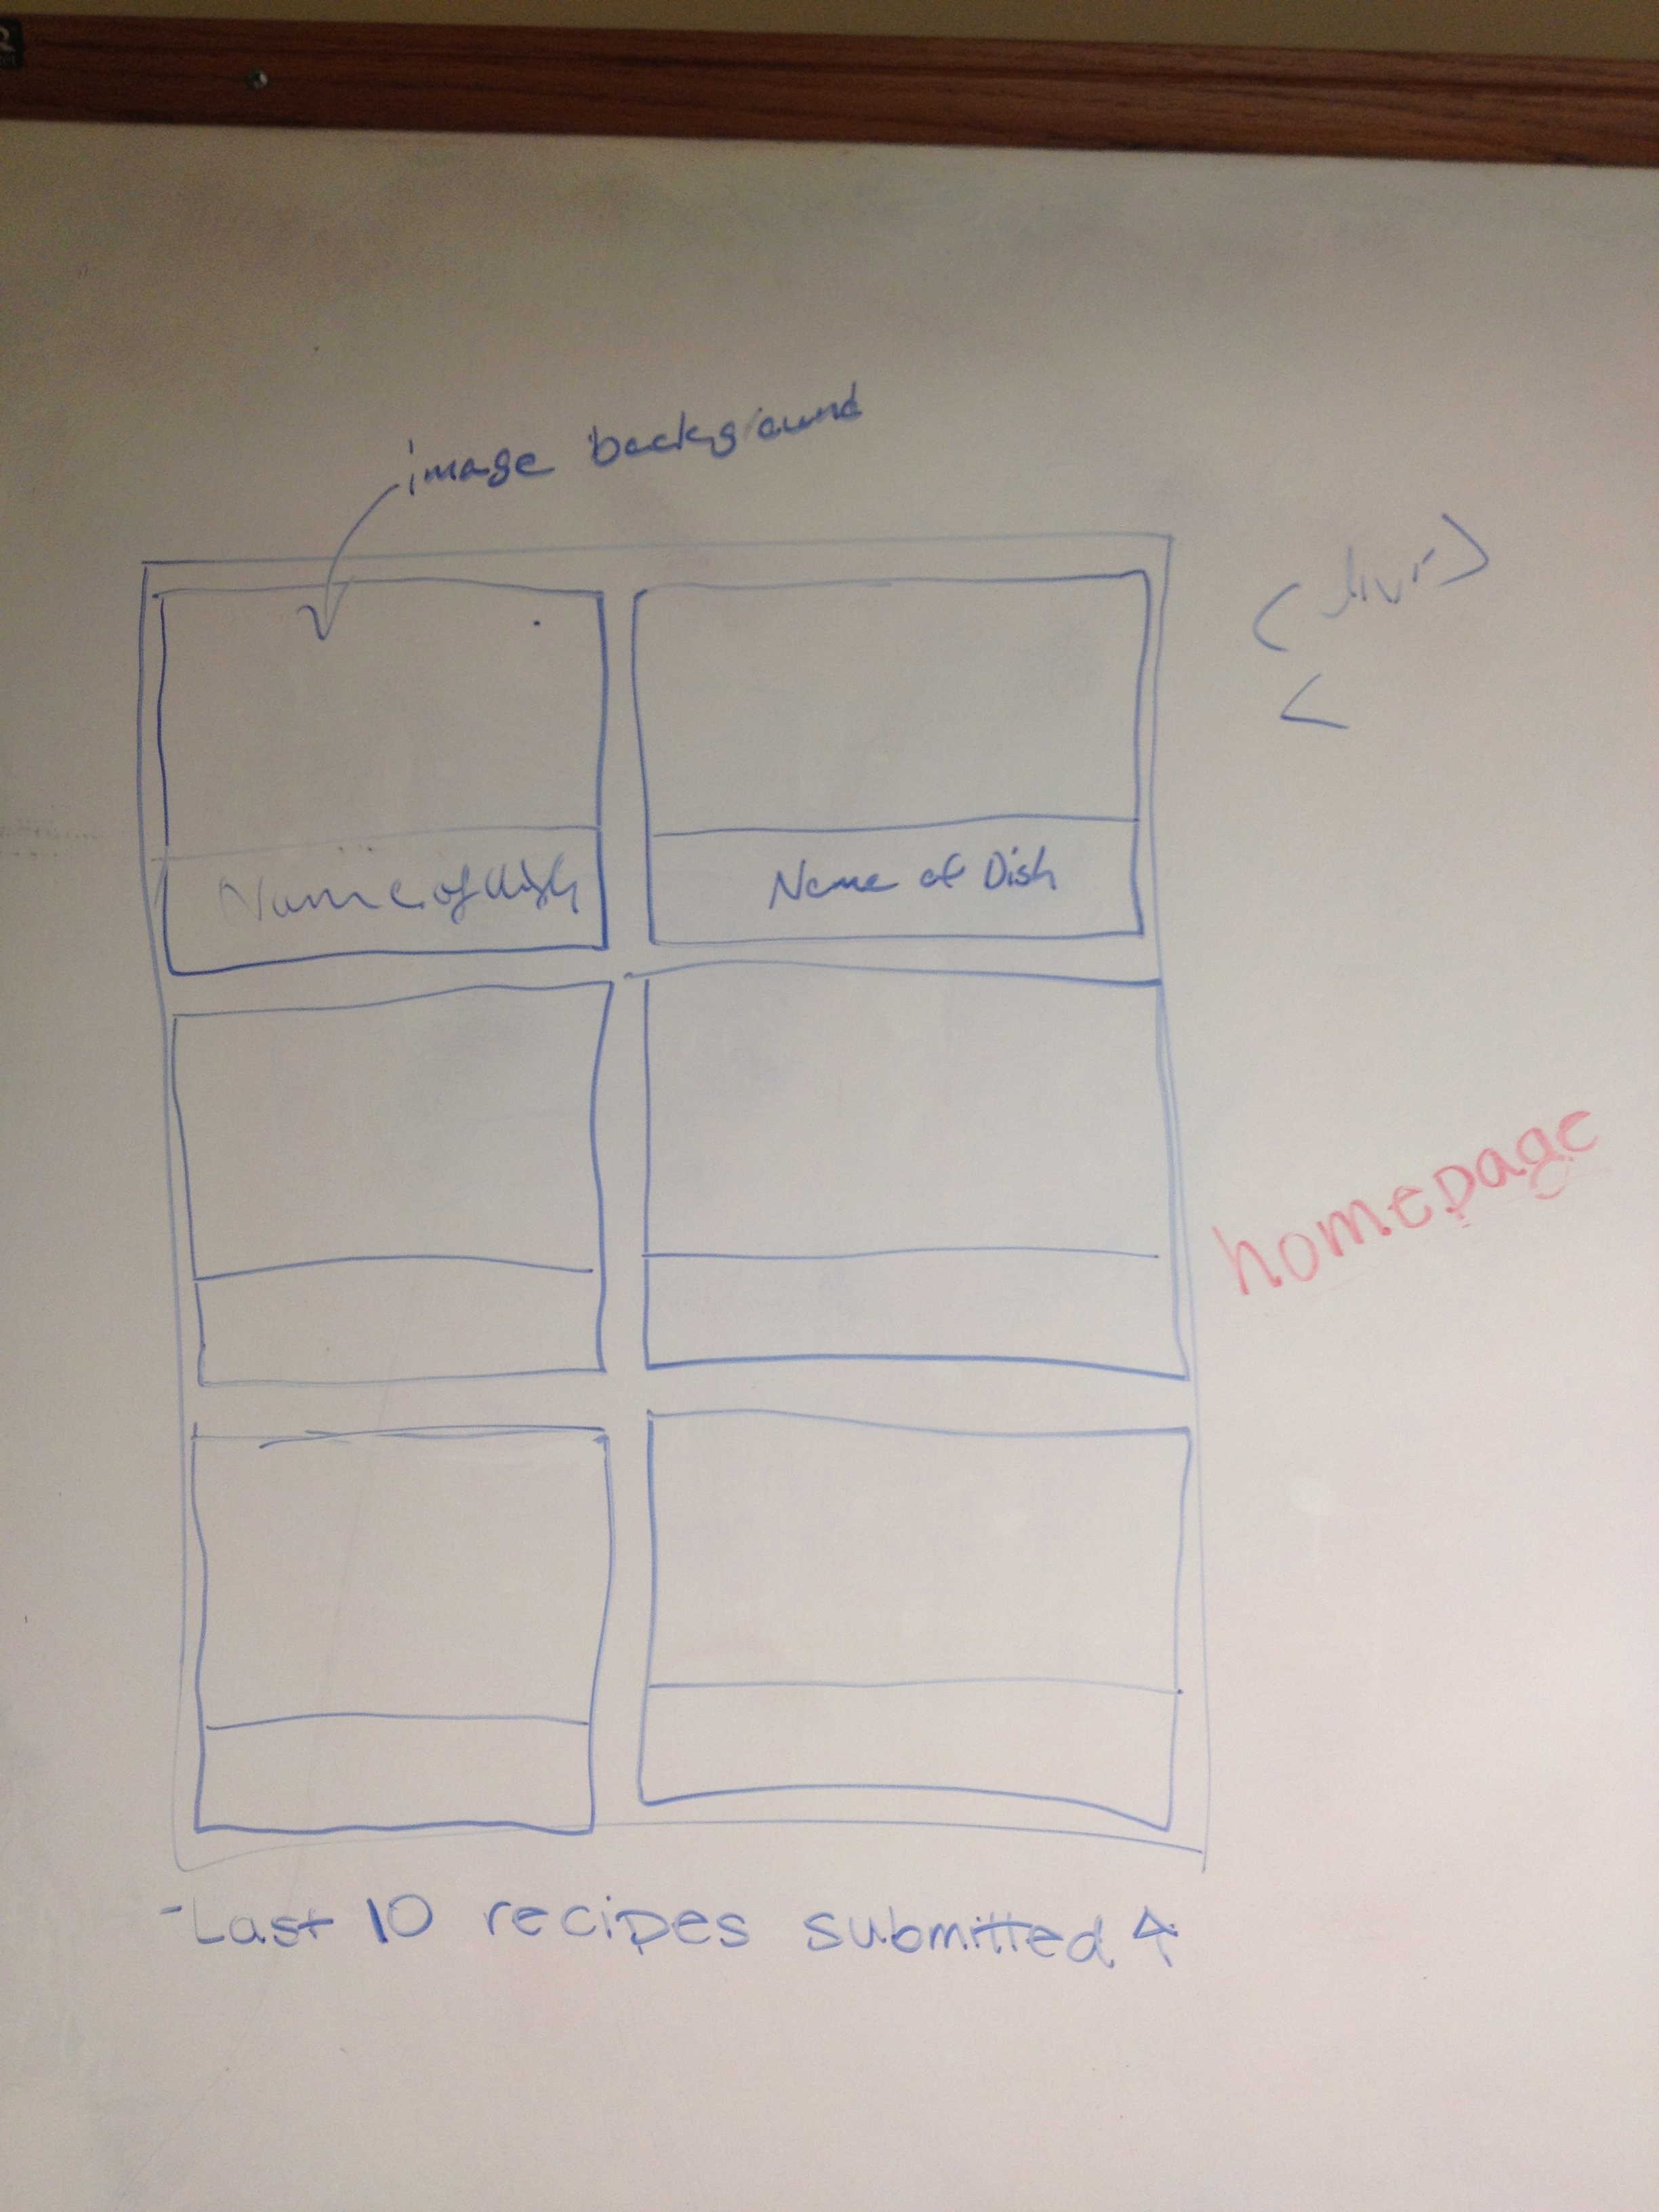 image background
<div>
<
Name of dish
Name of Dish
homepage
-Last 10 recipes submitted